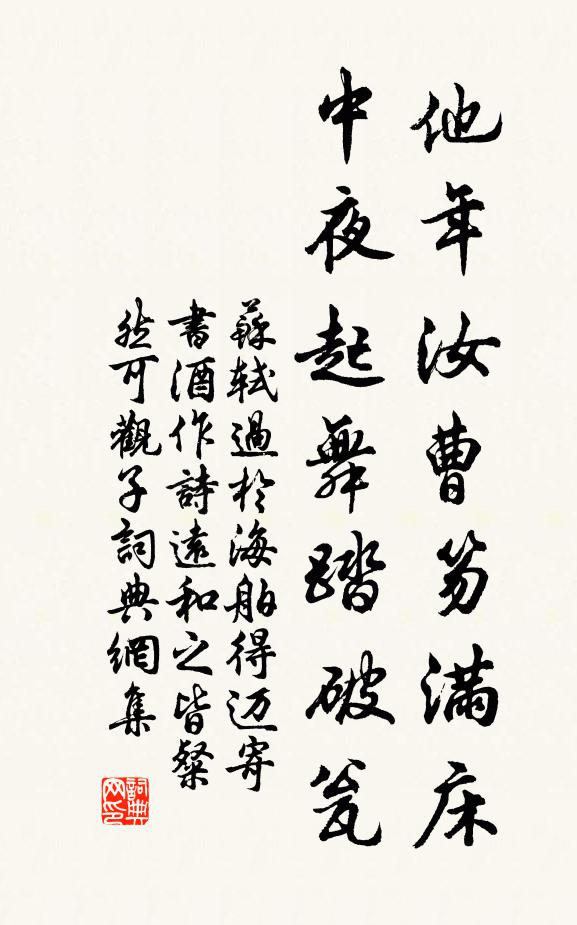 他年汝曹笏滿床
中夜起舞踏破瓮
蘇軾過於海舶得迈寄
書酒作詩遠和之皆粲
然可觀子詞典網集
詞典网印